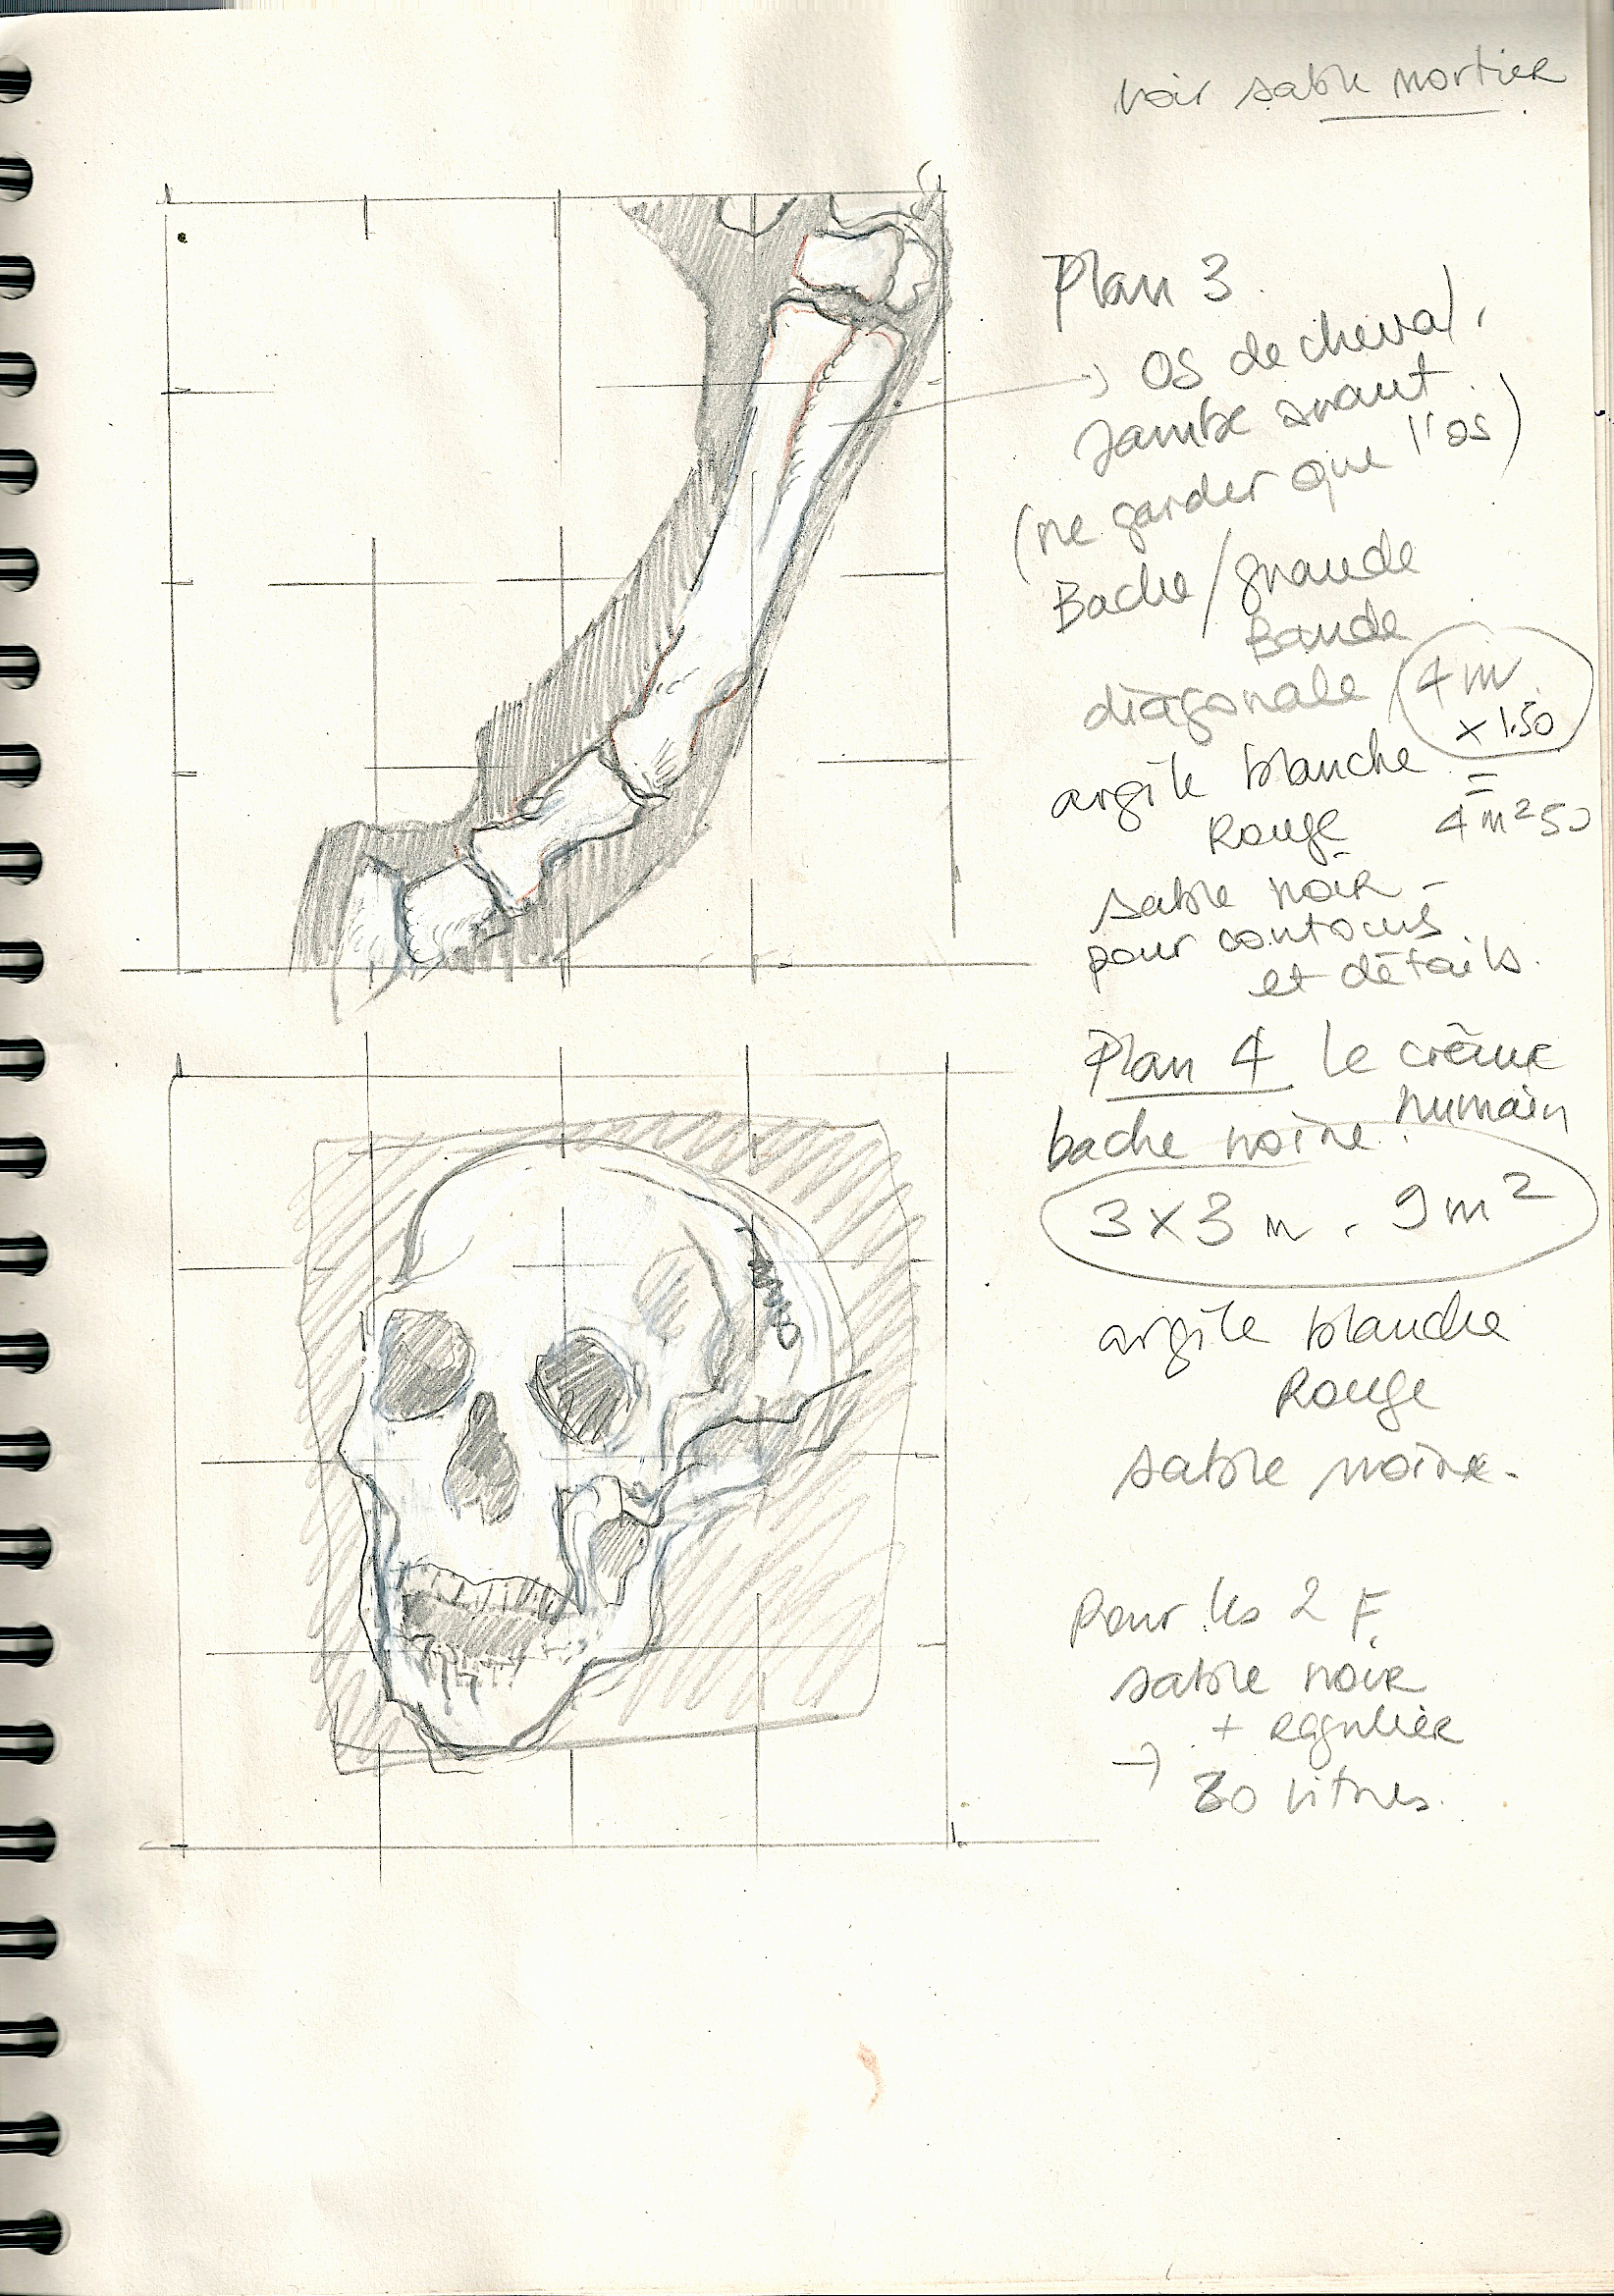 voir sable mortier
Plan 3
→ os de cheval,
Jambe avant
(ne garder que l'os)
Bache/grande
Bande
diagonale 4 m
x 1.50
argile blanche =
Rouge 4 m² 50
sable noir -
pour contours
et détails.
Plan 4 le crâne
humain
bache noire.
3 x 3 m . 9 m²
argile blanche
Rouge
sable noire.
Pour les 2 F.
sable noir
+ régulier
→ 30 litres.